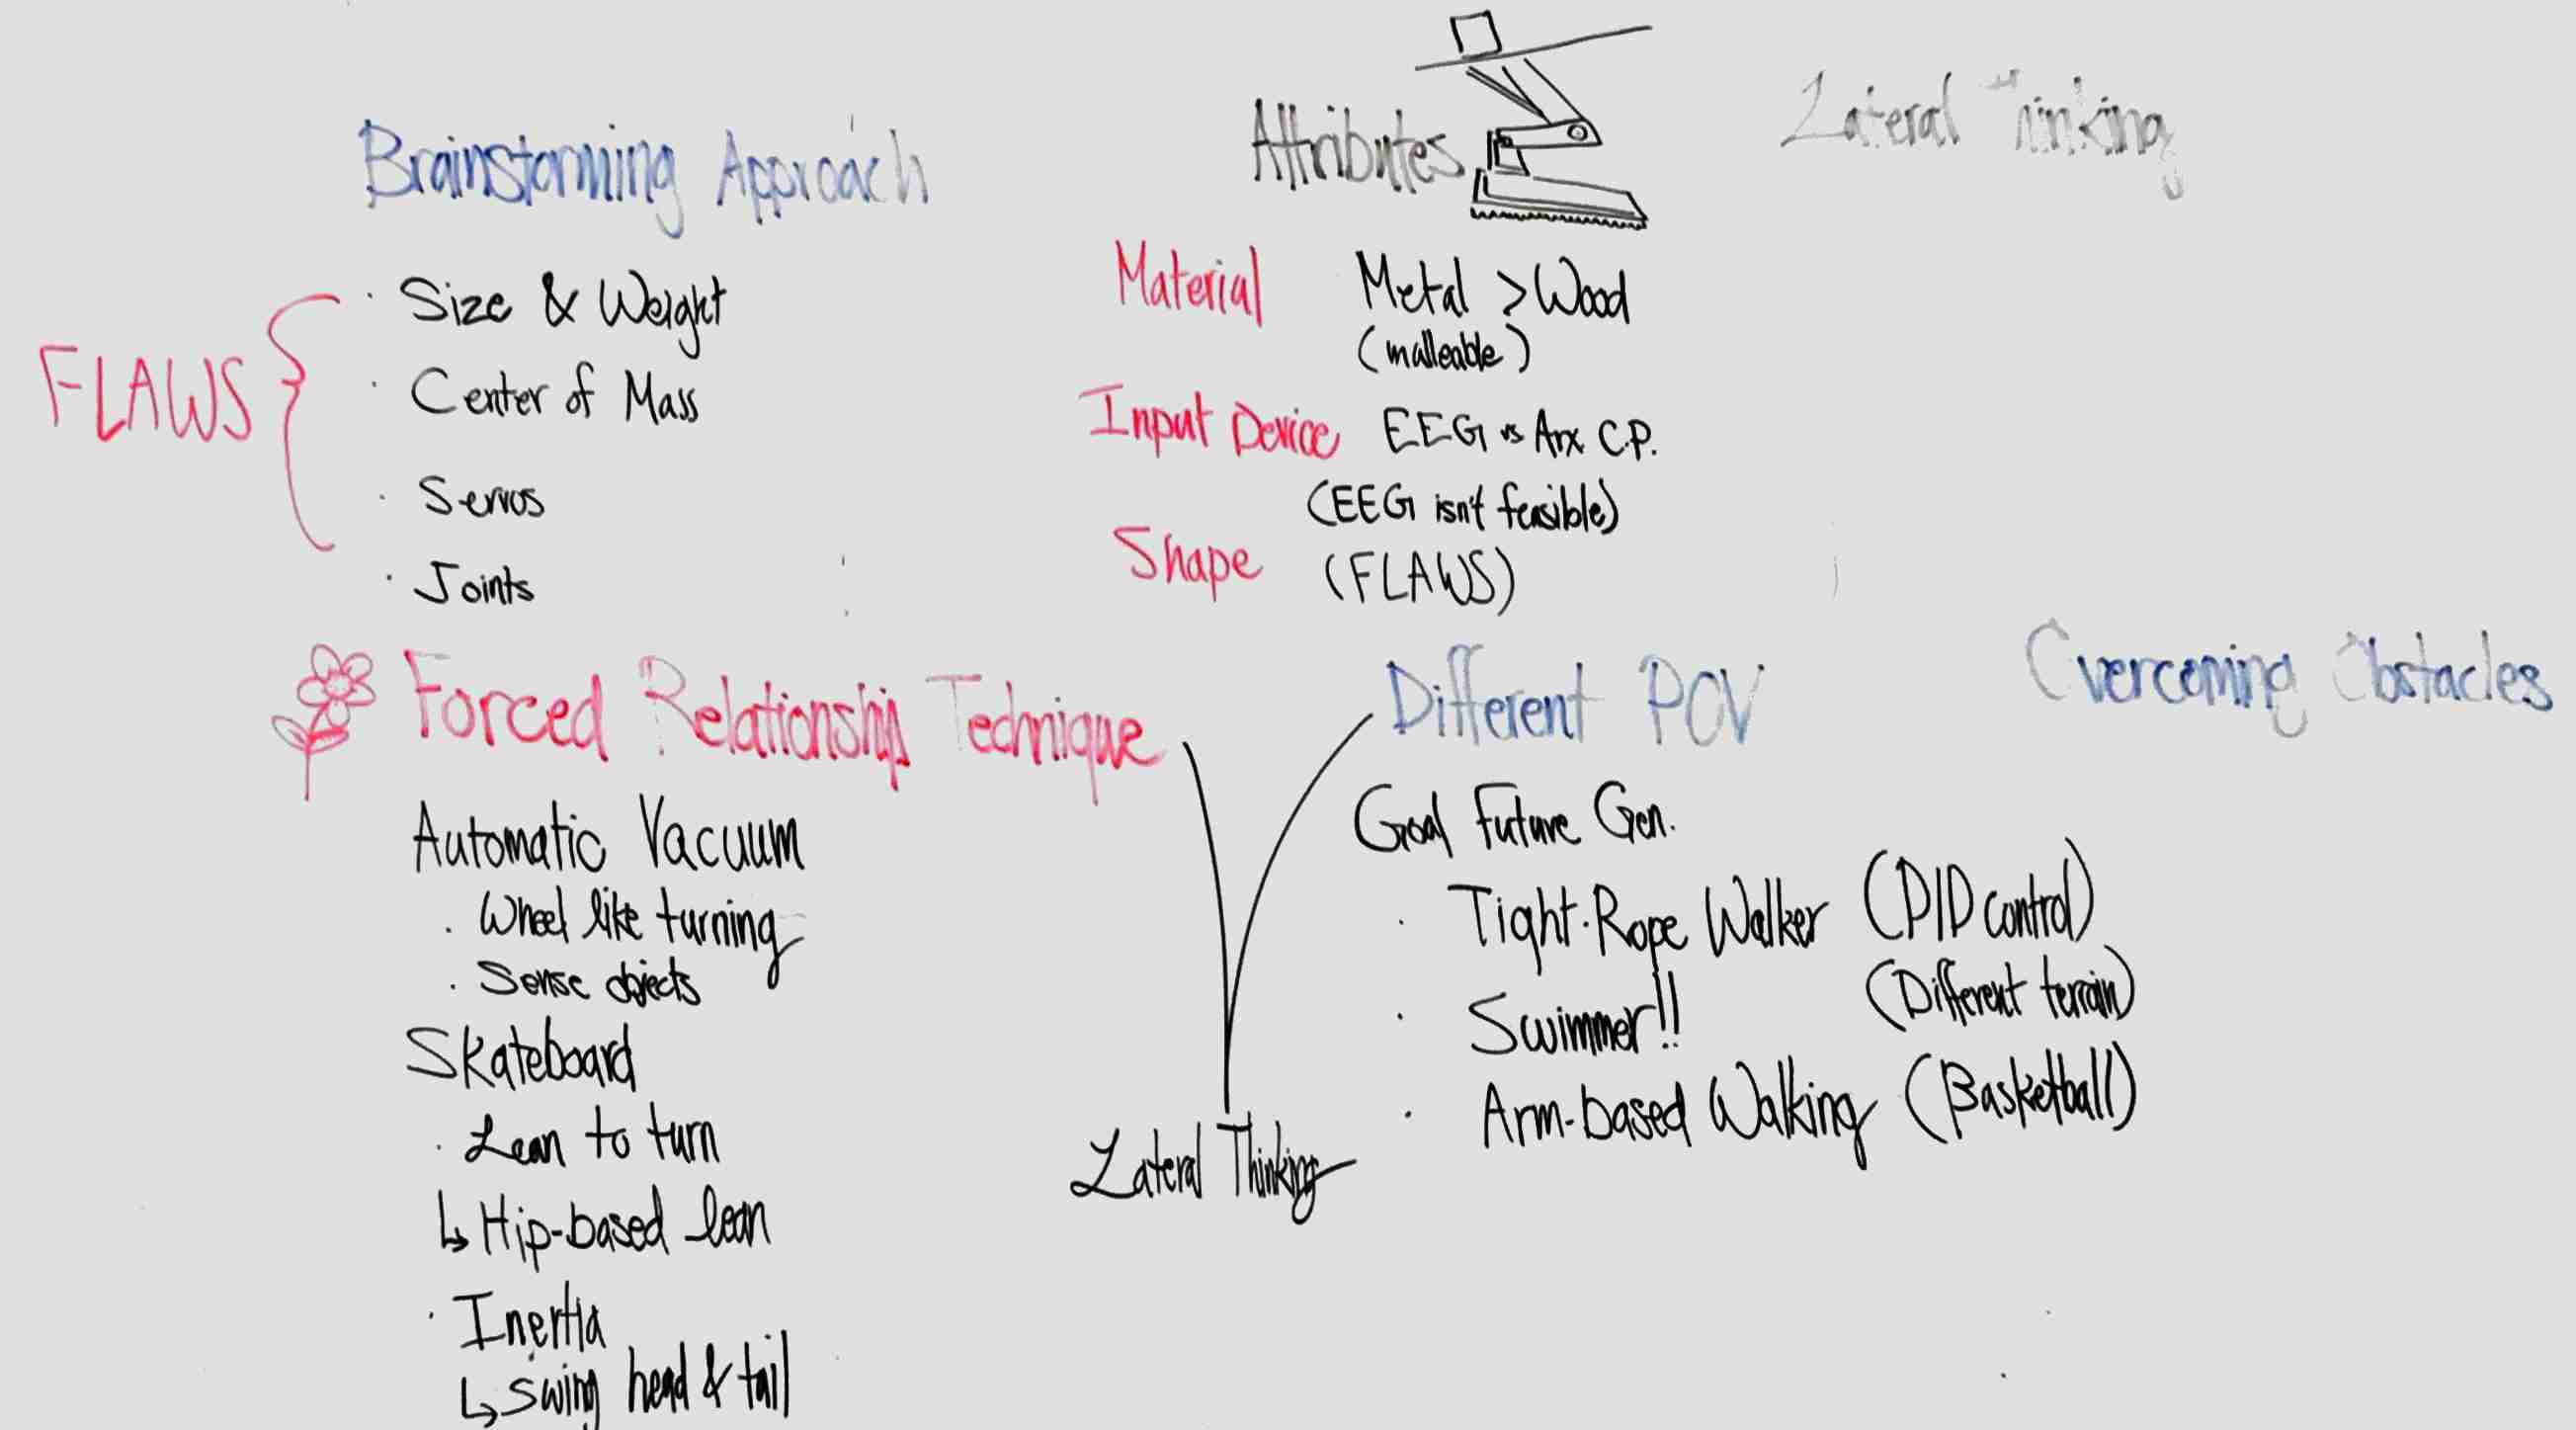 Brainstorming Approach
FLAWS
· Size & Weight
· Center of Mass
· Servos
· Joints
Attributes
Material Metal > Wood
(malleable)
Input Device EEG vs Arx C.P.
(EEG isn't feasible)
Shape (FLAWS)
Lateral Thinking
Forced Relationship Technique
Automatic Vacuum
· Wheel like turning
· Sense objects
Skateboard
· Lean to turn
↳ Hip-based lean
· Inertia
↳ swing head & tail
Different POV
Goal Future Gen.
· Tight-Rope Walker (PID control)
· Swimmer!! (Different terrain)
· Arm-based Walking (Basketball)
Lateral Thinking
Overcoming Obstacles